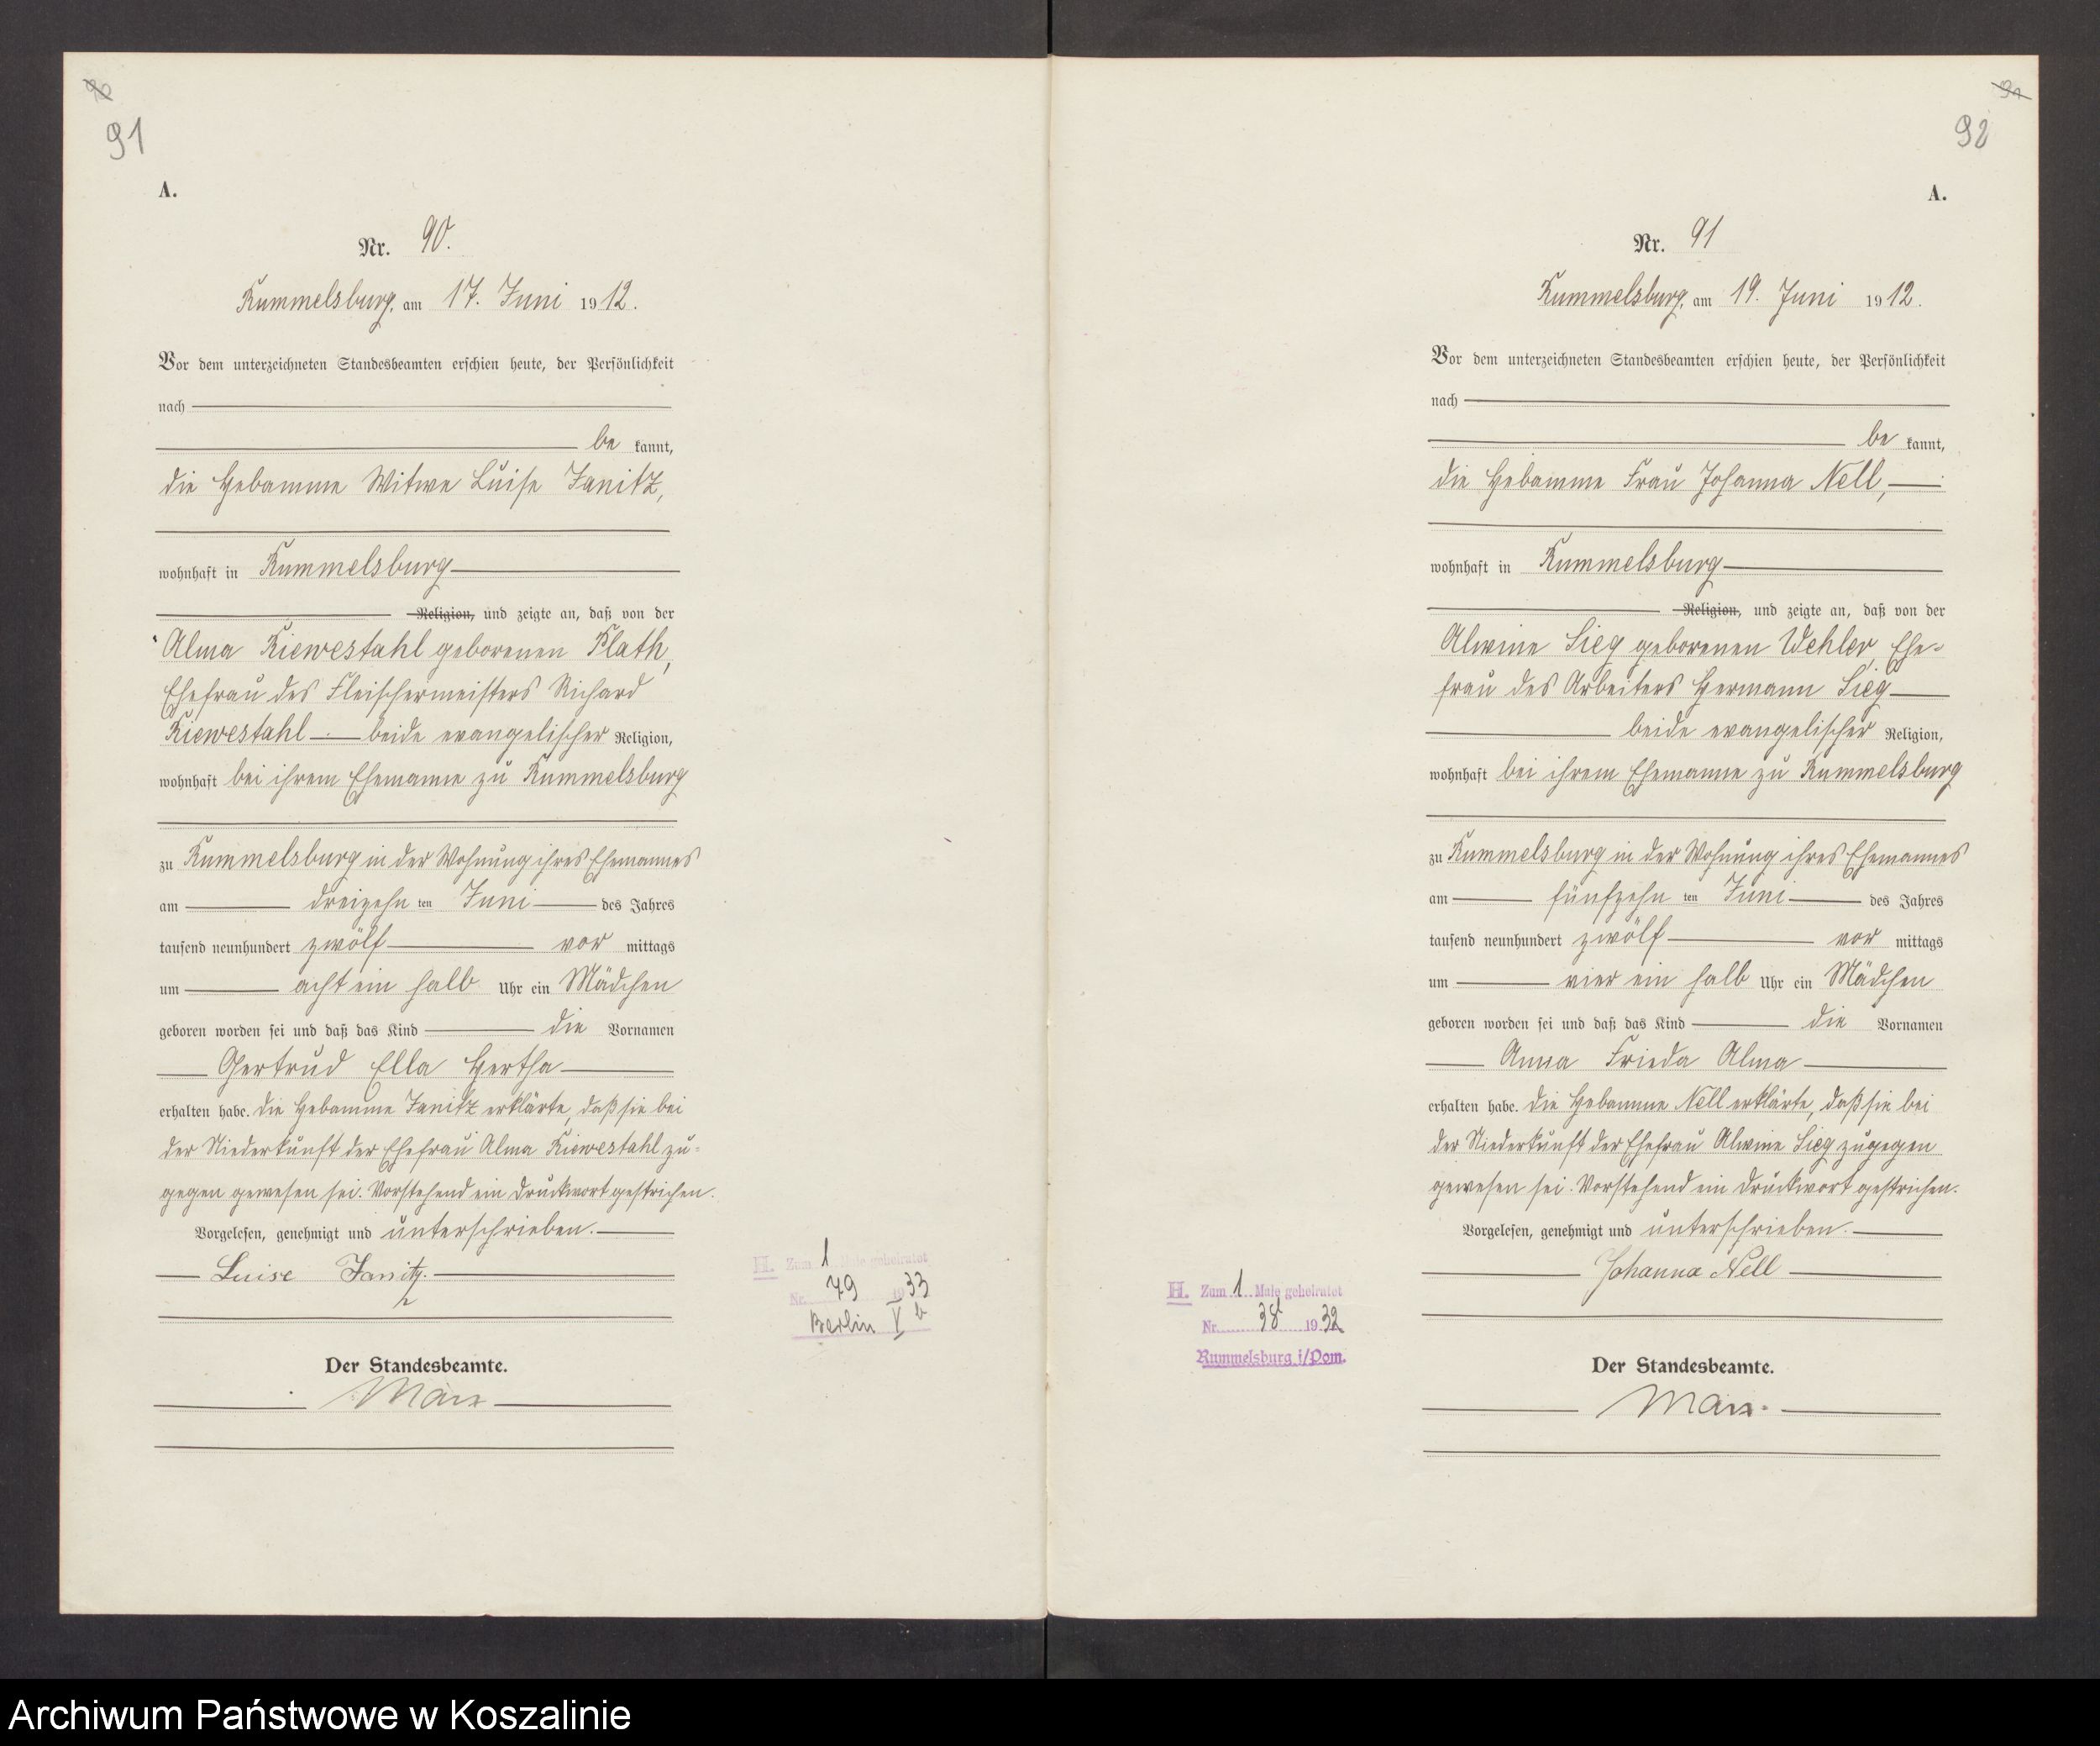 90
91
A.
Nr. 90.
Rummelsburg, am 17. Juni 1912.
Vor dem unterzeichneten Standesbeamten erschien heute, der Persönlichkeit
nach
be kannt,
die Hebamme Witwe Luise Janitz,
wohnhaft in Rummelsburg
Religion, und zeigte an, daß von der
Alma Kiewestahl geborenen Plath,
Ehefrau des Fleischermeisters Richard
Kiewestahl beide evangelischer Religion,
wohnhaft bei ihrem Ehemanne zu Rummelsburg
zu Rummelsburg in der Wohnung ihres Ehemannes
am dreizehn ten Juni des Jahres
tausend neunhundert zwölf vor mittags
um acht ein halb Uhr ein Mädchen
geboren worden sei und daß das Kind die Vornamen
Gertrud Ella Hertha
erhalten habe. Die Hebamme Janitz erklärte, daß sie bei
der Niederkunft der Ehefrau Alma Kiewestahl zu-
gegen gewesen sei. Vorstehend ein Druckwort gestrichen.
Vorgelesen, genehmigt und unterschrieben.
Luise Janitz.
Der Standesbeamte.
H. Zum 1 Male geheiratet
Nr. 79 1933
Berlin V b
91
92
A.
Nr. 91
Rummelsburg, am 19. Juni 1912.
Vor dem unterzeichneten Standesbeamten erschien heute, der Persönlichkeit
nach
be kannt,
die Hebamme Frau Johanna Nell,
wohnhaft in Rummelsburg
Religion, und zeigte an, daß von der
Alwine Sieg geborenen Wehler, Ehe-
frau des Arbeiters Hermann Sieg
beide evangelischer Religion,
wohnhaft bei ihrem Ehemanne zu Rummelsburg
zu Rummelsburg in der Wohnung ihres Ehemannes
am fünfzehn ten Juni des Jahres
tausend neunhundert zwölf vor mittags
um vier ein halb Uhr ein Mädchen
geboren worden sei und daß das Kind die Vornamen
Anna Frieda Alma
erhalten habe. Die Hebamme Nell erklärte, daß sie bei
der Niederkunft der Ehefrau Alwine Sieg zugegen
gewesen sei. Vorstehend ein Druckwort gestrichen.
Vorgelesen, genehmigt und unterschrieben.
Johanna Nell
H. Zum 1 Male geheiratet
Nr. 38 1932
Rummelsburg i/Pom.
Der Standesbeamte.
Archiwum Państwowe w Koszalinie